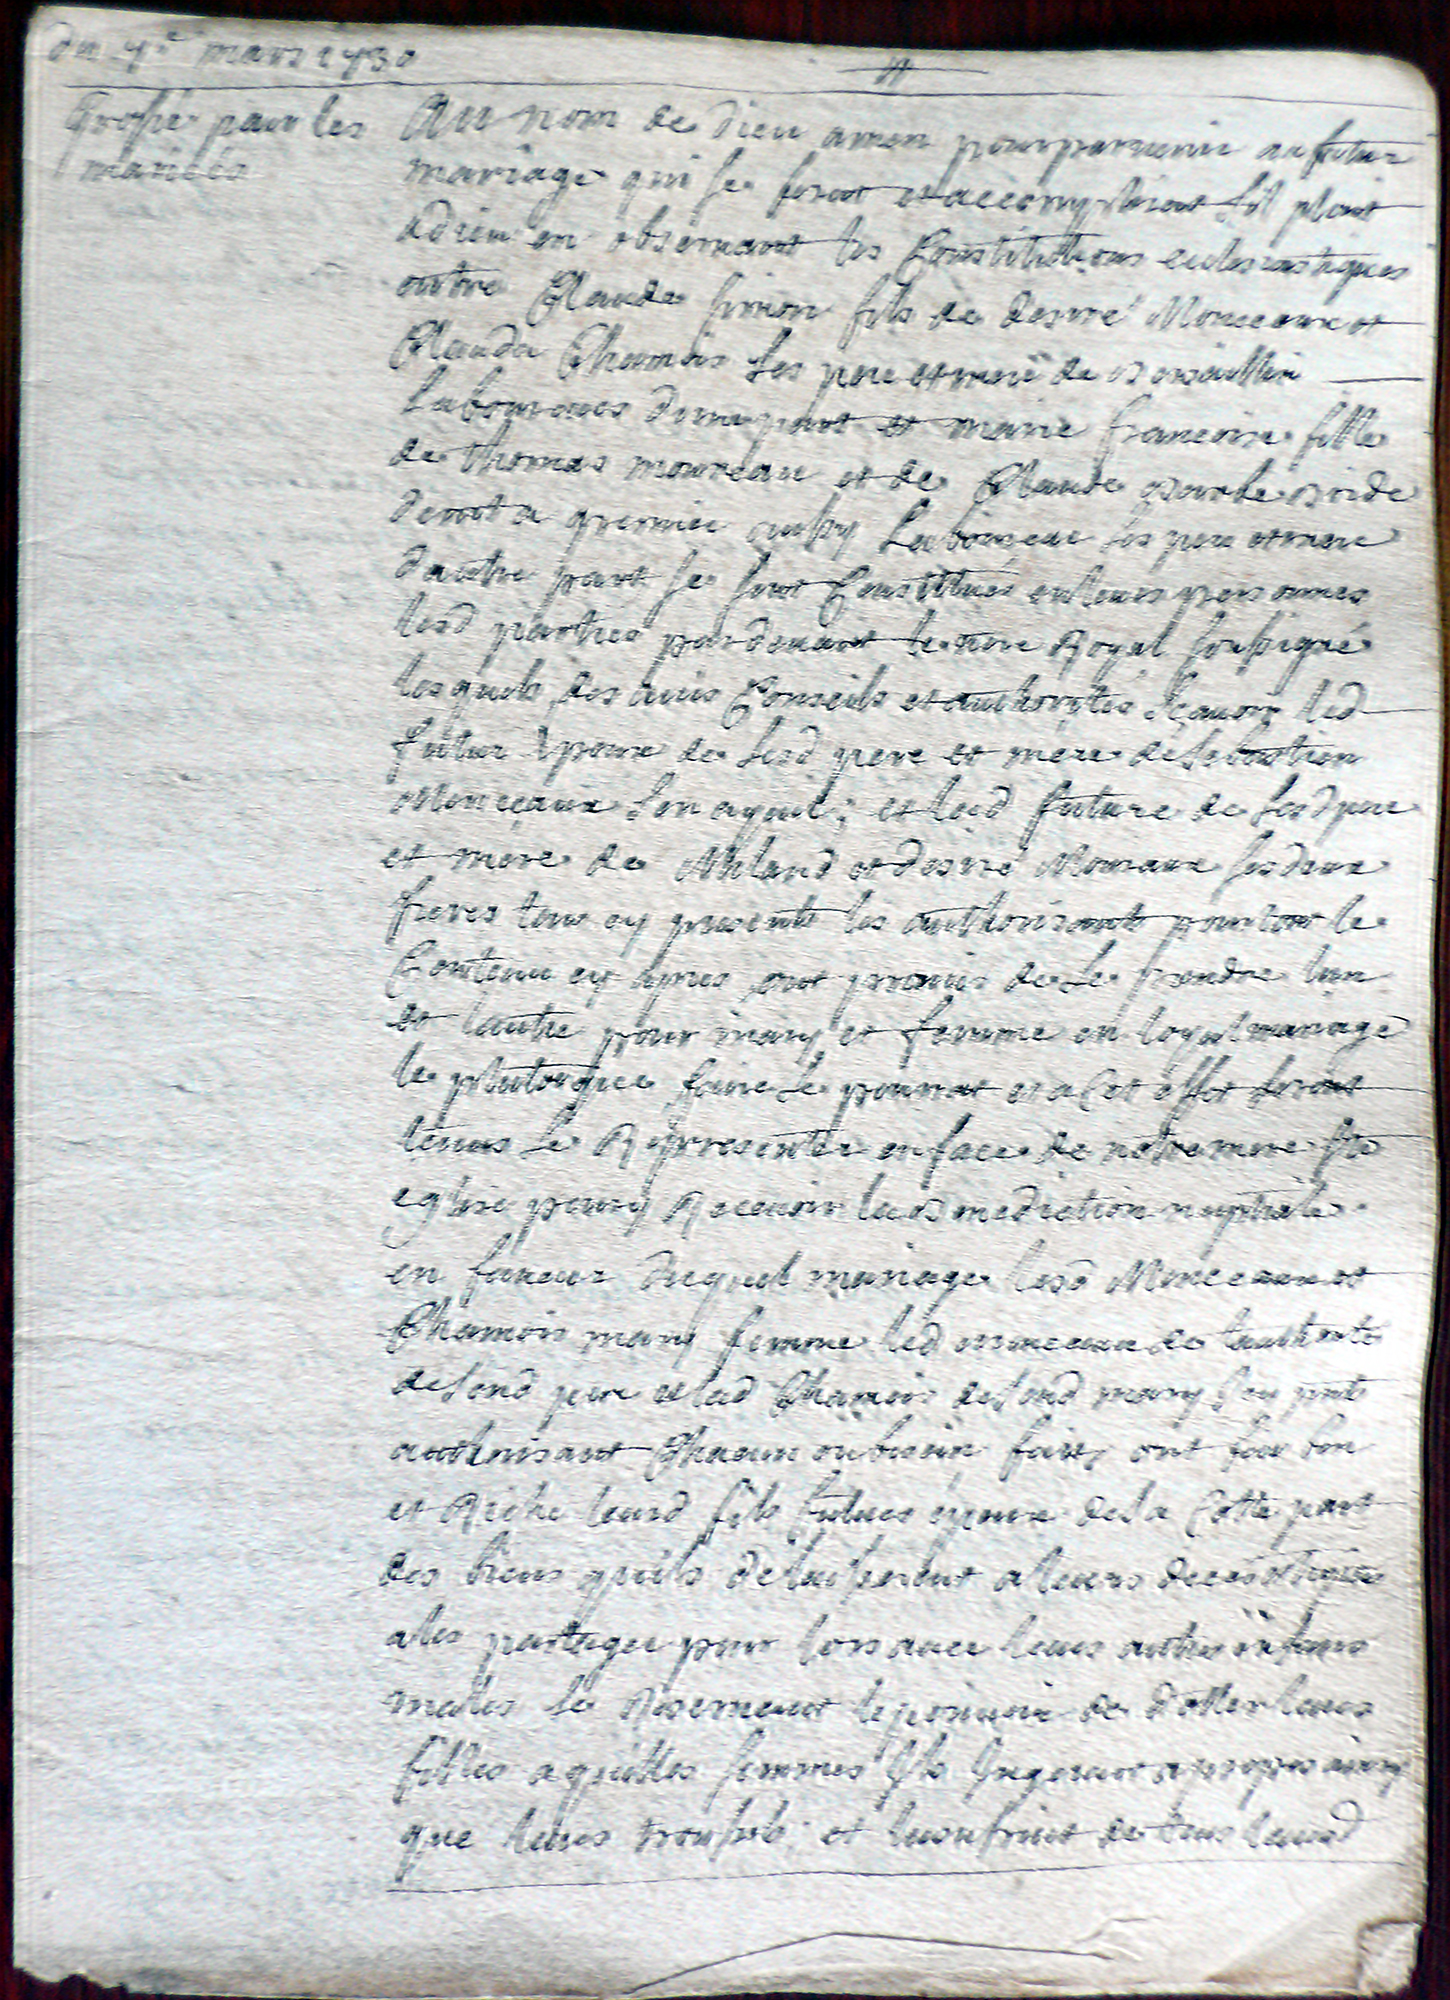 du 7e mars 1730
Grossé pour les
mariées
Au nom de Dieu amen pour parvenir au futur
mariage qui se feroit et accompliroit s'il plait
a dieu en observant les Constitutions eclesiastiques
entre Claude simon fils de desiré Monceaux et
Clauda Chamois ses pere et mere de
Laboureurs d'une part et marie francoise fille
de thomas moureau et de Claude
demt a ses pere et mere
d'autre part se sont Constitués en leurs personnes
lesd parties pardevant le nore Royal soussigné
lesquels des avis Conseils et authorités scavoir led
futur Epoux de sesd pere et mere de sebastien
Monceaux son ayeul; et lad future de sesd pere
et mere de et desiré Moureaux ses deux
freres tous cy presents les authorisants pour tout le
Contenu cy apres ont promis de se prendre lun
et lautre pour mary et femme en loyal mariage
le plutot que faire se pourrat et a Cet effet seront
tenus se Representer en face de notre mere ste
eglise pour y Recevoir la Benediction nuptiale
en faveur duquel mariage lesd Monceaux et
Chamois mary femme led monceaux de lauthorité
de sond pere et lad Chamois de sond mary
authorisant Chacun où besoin faire, ont fait bon
et Riche leurd fils futur epoux de la Cotte part
des biens quils delaisseront a leurs deces
a les partager pour lors avec leurs autres enfans
males se Reservent le pouvoir de dotter leurs
filles a quelles sommes Ils Jugeront a propos ainsy
que leurs troussels; et lusufruit de tous leursd